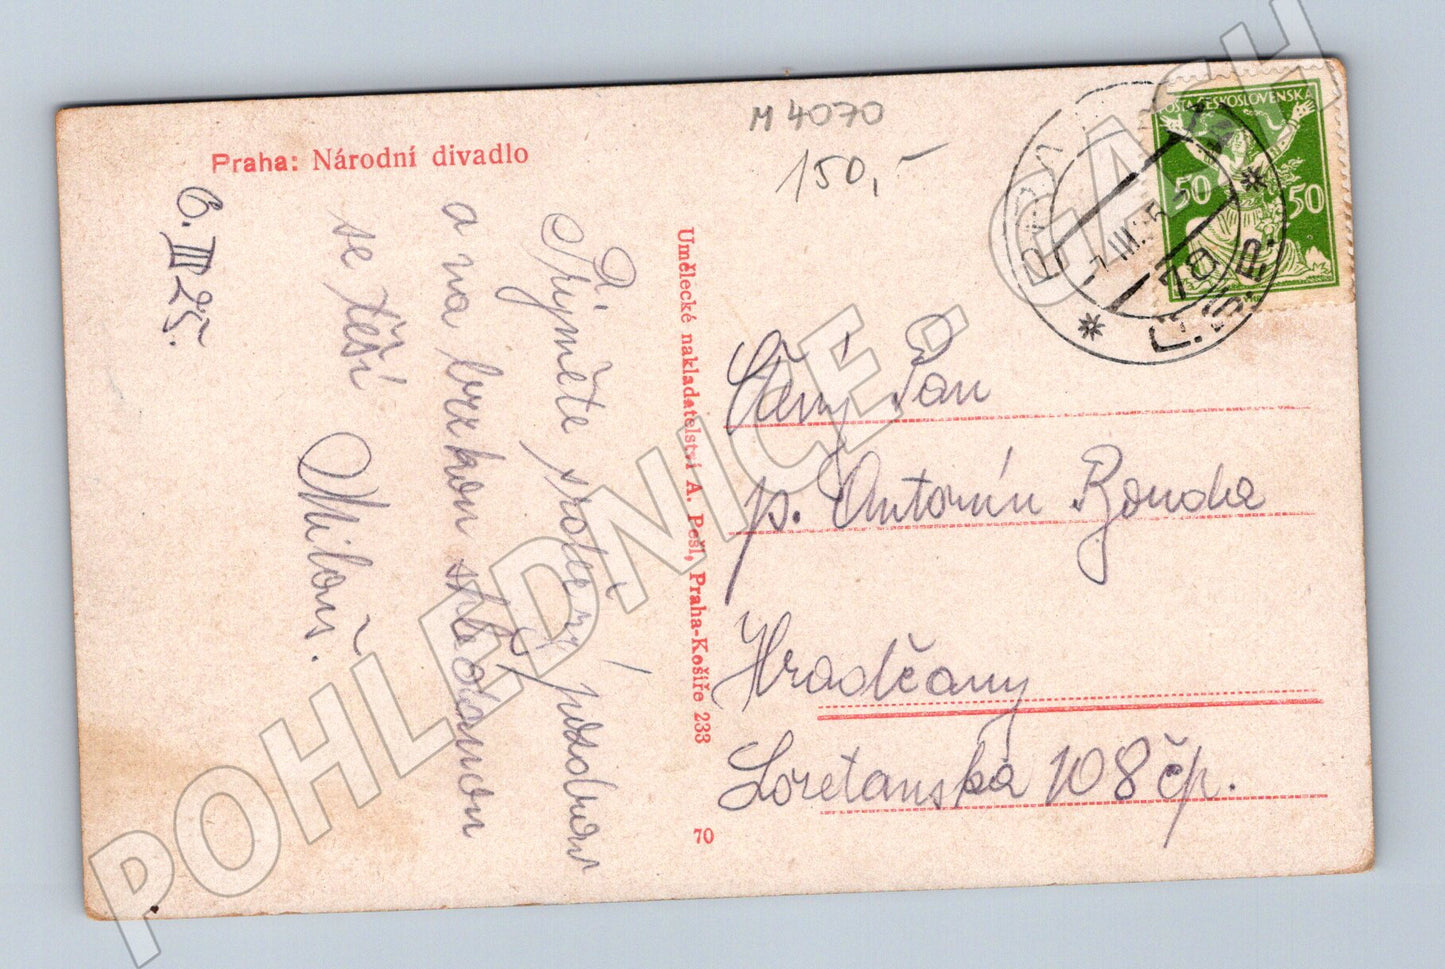 Praha: Národní divadlo
M 4070
150,-
POŠTA ČESKOSLOVENSKÁ
50 50
7. III. 25
Č.S.P.
6. III 25.
Přijměte srdečný pozdrav
a na brzkou shledanou
se těší
Miloš.
Umělecké nakladatelství A. Pešl, Praha-Košíře 233
70
Ctěný Pan
p. Antonín Bouda
Hradčany
Loretanská 108 čp.
POHLEDNICE. PRAH